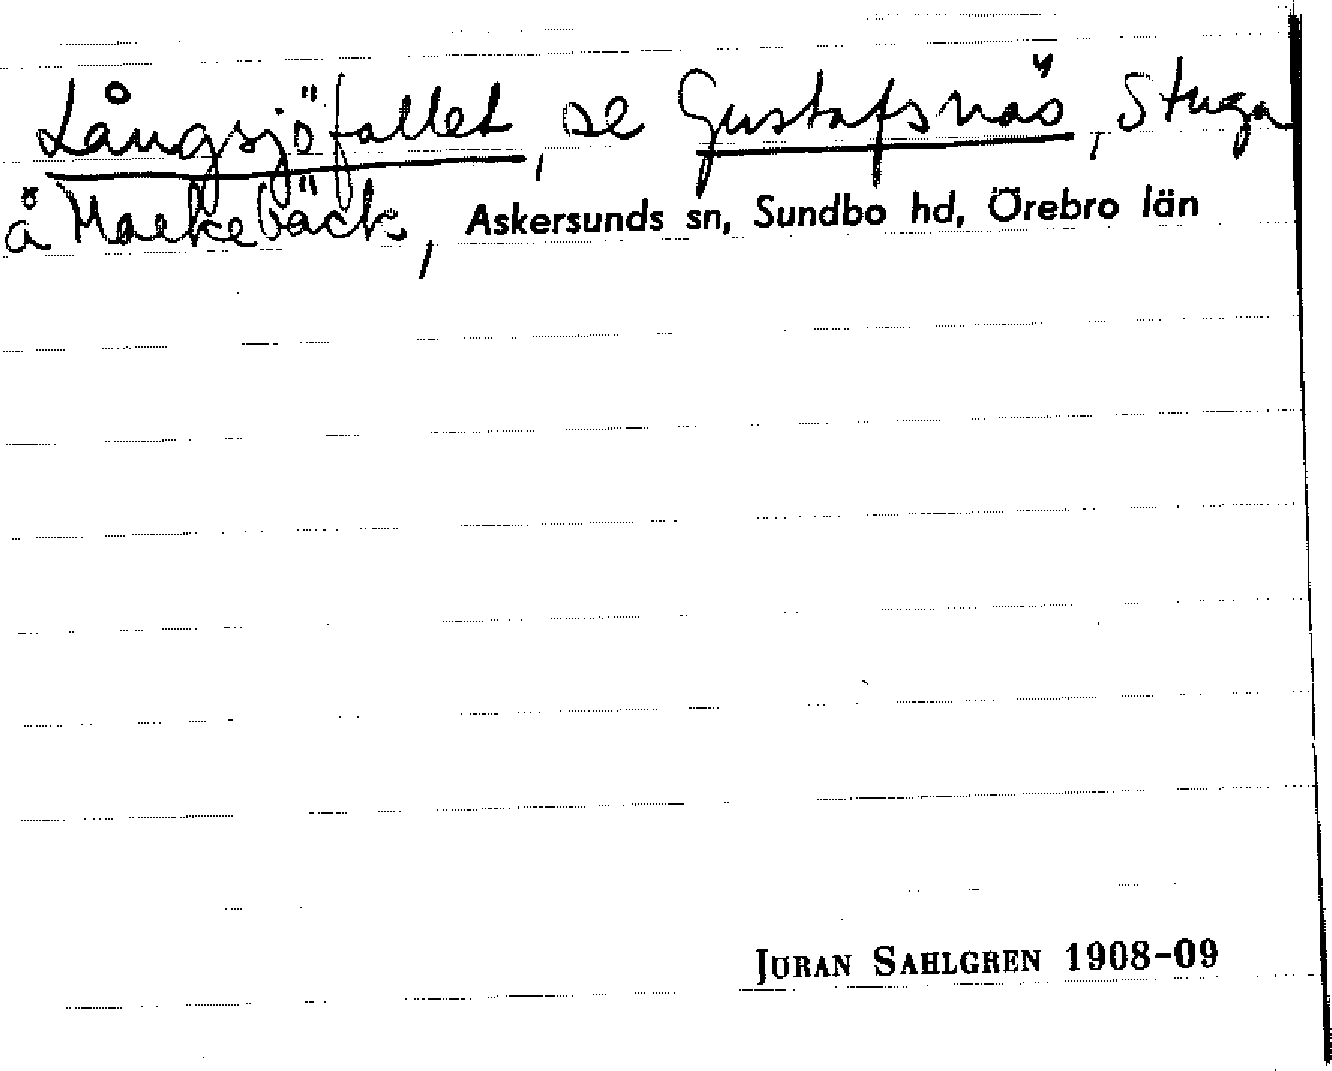 Långsjöfallet, se Gustafsnäs, Stuga
å Markebäck, Askersunds sn, Sundbo hd, Örebro län
JÖRAN SAHLGREN 1908-09